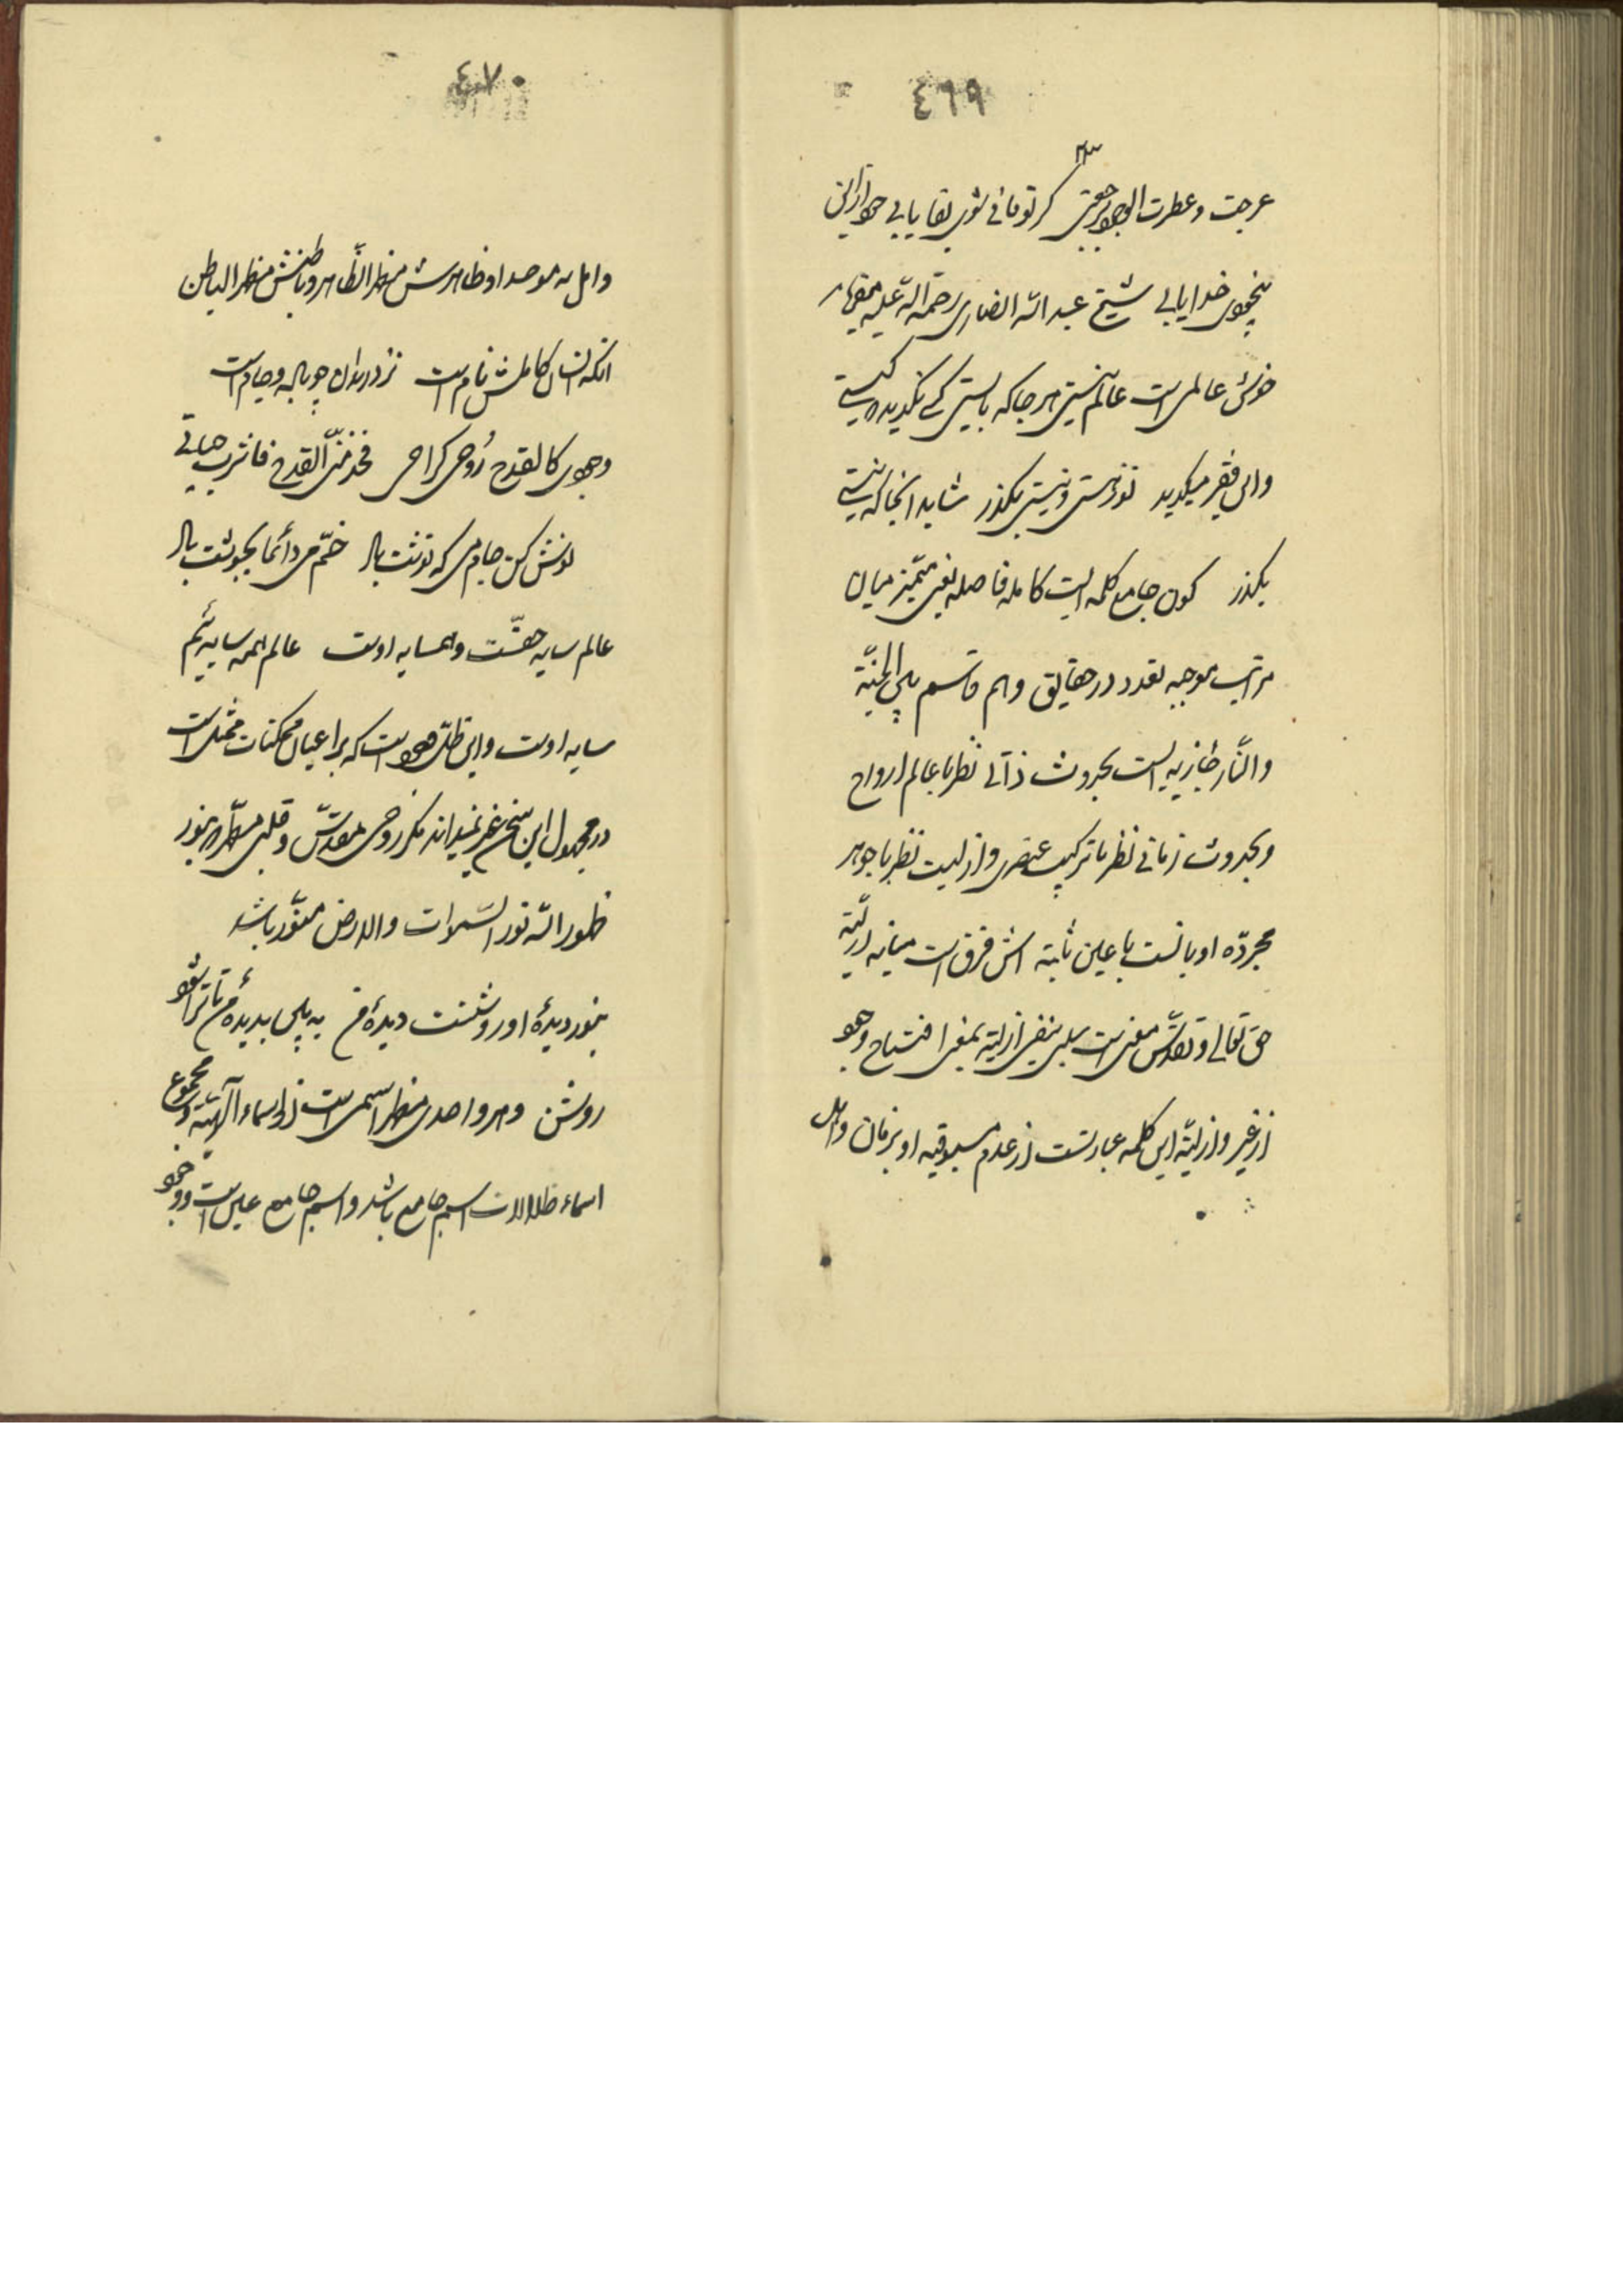 ٤٦٩
عرجت و عطرت الوجود برجعتی کر تو فانی شوی بقا یابی
بیخودی خدا یابی شیخ عبد الله انصاری رحمة الله علیه میفرماید
خوش عالمی است عالم نیستی هر جا که بایستی کس نگوید کیستی
و این فقیر میگوید تو ز هستی و نیستی بگذر شاید آنجا که نیستی
بگذر کون جامع کلمه ایست کامله فاصله یعنی ممیز میان
مراتب موجبه تعدد در حقایق و هم قاسم بین الجنّة
والنّار جنازیه است بحدوث ذاتی نظر با عالم ارواح
و بحدوث زمانی نظر با ترکیب عنصری و ازلیت نظر با جوهر
مجرّده او یا نسبت با عین ثابته اش فرق است میانه ازلیّة
حق تعالی و تقدّس معنی است سلبی ینفی ازلیّة بمعنی افتتاح وجود
از غیر و ازلیّة این کلمه عبارتست از عدم مسبوقیه او بزمان و اهل
٤٧٠
و اهل موحد او ظاهرش مظهر الظّاهر و باطنش مظهر الباطن
آنکه انسان کاملش نام است نزد رندان چو باده و جام است
وجودی کالقدح رُوحی کراحی فخذ منّی القدح فاشرب حیاتی
نوش کن جام می که نوشت باد خمّ می دائما بجوشت باد
عالم سایه حقّست و همسایه اوست عالم همه سایه ئیم
سایه اوست و این ظلّ وجود است که بر اعیان ممکنات ممتد است
در مجهول این سخن غیر نمیداند مگر روحی مقدّس و قلبی مطهّر که بنور
ظهور الله نور السّموات والارض منوّر باشد
بنور دیدهٔ او روشنست دیدهٔ من به بین بدیدهٔ من تا ترا شود
روشن و هر واحدی مظهر اسمی است از اسماء الهیّة و مجموع
اسماء ظلالات اسم جامع باشد و اسم جامع عین است و وجود